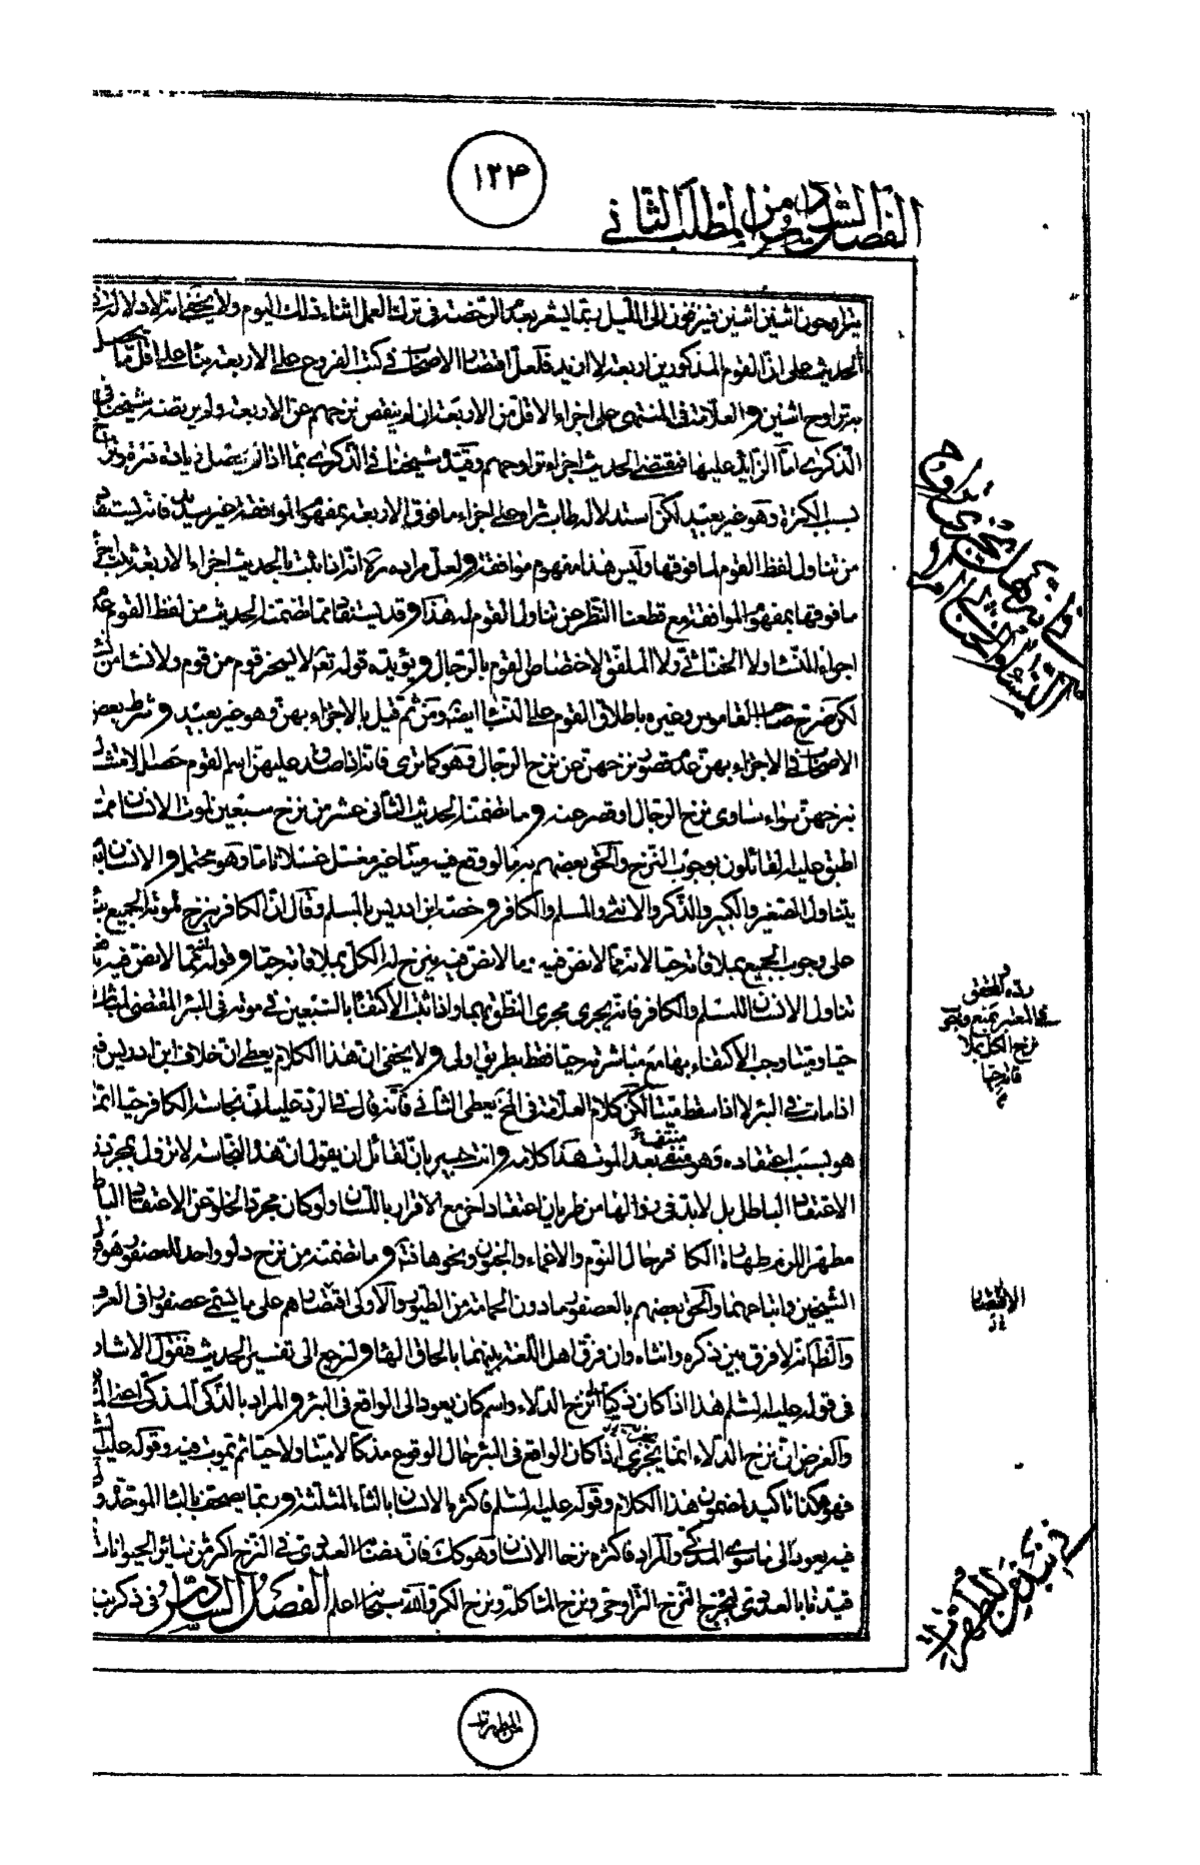 ١٢٤
الفصل السادس من المطلب الثاني
يتراوحون اثنين اثنين فينزفون الى الليل ربما يشعر بعدم الرخصة في ترك العمل اثناء ذلك اليوم ولا يخفى انه لا دلالة
الحديث على ان القوم المذكورين اربعة لا ازيد فلعل اقتصار الاصحاب في كتب الفروع على الاربعة بناء على اقل ما يحصل
به تراوح اثنين والعلامة في المنتهى على اجزاء الاقل من الاربعة ان لم ينقص نزحهم عن الاربعة ولم يرتضه شيخنا في
الذكرى اما الزايد عليها فمقتضى الحديث اجزاء تراوحهم وقيده شيخنا في الذكرى بما اذا لم يحصل زيادة فترة وتراخ
بسبب الكثرة وهو غير بعيد لكن استدلاله طاب ثراه على اجزاء ما فوق الاربعة بمفهوم الموافقة غير سديد فانه ليستفاد
من تناول لفظ القوم لما فوقها وليس هذا مفهوم موافقة ولعل مراده ره انه اذا ثبت بالحديث اجزاء الاربعة يثبت اجزاء
ما فوقها بمفهوم الموافقة مع قطعنا النظر عن تناول القوم له هذا وقد يستفاد مما تضمنه الحديث من لفظ القوم عدم
اجزاء النساء ولا الخناثى ولا الملفق لاختصاص القوم بالرجال ويؤيده قوله تعه لا يسخر قوم من قوم ولا نساء من نساء
لكن صرح صاحب القاموس وغيره باطلاق القوم على النساء ايضا ومن ثم قيل بالاجزاء بهن وهو غير بعيد وشرط بعض
الاصحاب في الاجزاء بهن عدم قصور نزحهن عن نزح الرجال وهو كما ترى فانه اذا صدق عليهن اسم القوم حصل الامتثال
بنزحهن سواء ساوى نزح الرجال او قصر عنه وما تضمنه الحديث الثاني عشر من نزح سبعين لموت الانسان مما
اطبق عليه القائلون بوجوب النزح والحق بعضهم به ما لو وقع فيه ميتا غير مغتسل غسلا تاما وهو محتمل والانسان
يتناول الصغير والكبير والذكر والانثى والمسلم والكافر وخصه ابن ادريس بالمسلم وقال ان الكافر ينزح لموته الجميع
على وجوب الجميع بملاقاته حيا لانه مما لا نص فيه وما لا نص فيه ينزح له الكل بملاقاته حيا وقوله انه مما لا نص فيه
تناول الانسان للمسلم والكافر فانه يجري مجرى النطق بهما واذا ثبت الاكتفاء بالسبعين في موته في البئر المقتضي لمباشرته
حيا وميتا وجب الاكتفاء بها مع مباشرته حيا فقط بطريق اولى ولا يخفى ان هذا الكلام يعطي ان خلاف ابن ادريس فيما
اذا مات في البئر لا اذا سقط ميتا لكن كلام العلامة في المخ يعطي الثاني فانه قال في الرد عليه ان نجاسة الكافر حيا انما
هو بسبب اعتقاده وهو منتف بعد الموت هذا كلامه وانت خبير بان لقائل ان يقول ان هذه النجاسة لا تزول بمجرد
الاعتقاد الباطل بل لا بد في زوالها من طريان اعتقاد اخر مع الاقرار باللسان ولو كان مجرد الخلو عن الاعتقاد الباطل
مطهرا لزم طهارة الكافر حال النوم والاغماء والجنون ونحوها فتأمل وما تضمنه من نزح دلو واحد للعصفور هو قول
الشيخين واتباعهما والحق بعضهم بالعصفور ما دون الحمامة من الطيور والاولى اقتصارهم على ما يسمى عصفورا في العرف
والظاهر انه لا فرق بين ذكره وانثاه وان فرق اهل اللغة بينهما بالحاق الهاء ولنرجع الى تفسير الحديث فنقول الاشارة
في قوله عليه السلم هذا اذا كان ذكيا الى نزح الدلاء واسم كان يعود الى الواقع في البئر والمراد بالذكي المذكى
والغرض ان نزح الدلاء انما يجزي اذا كان الواقع في البئر حال الوقوع مذكا لا ميتا ولا حيا ثم يموت فيه وقوله عليه
فهو هكذا تاكيد لمضمون هذا الكلام وقوله عليه السلم فاكثره الانسان بالثاء المثلثة وربما يصحف بالباء الموحدة
فيه يعود الى ما سوى المذكى والمراد فاكثره نزحا الانسان وهو كك فان نصابه العددي في النزح اكثر من سائر الحيوانات
قيدنا بالعددي ليخرج النزح التراوحي ونزح المشاكلة ونزح الكر والله سبحانه اعلم الفصل السادس في ذكر نبذ
في انه هل يجزي تراوح
النساء والخناثى ام لا
رده المحقق
في المعتبر بمنع وجوب
نزح الكل بملا
قاته حيا
الاقتصار
في نبذ من المطهرات
من المطهرات